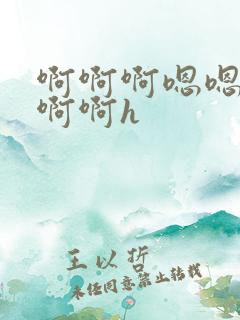 啊啊啊嗯嗯
啊啊h
王以哲
未经同意禁止转载